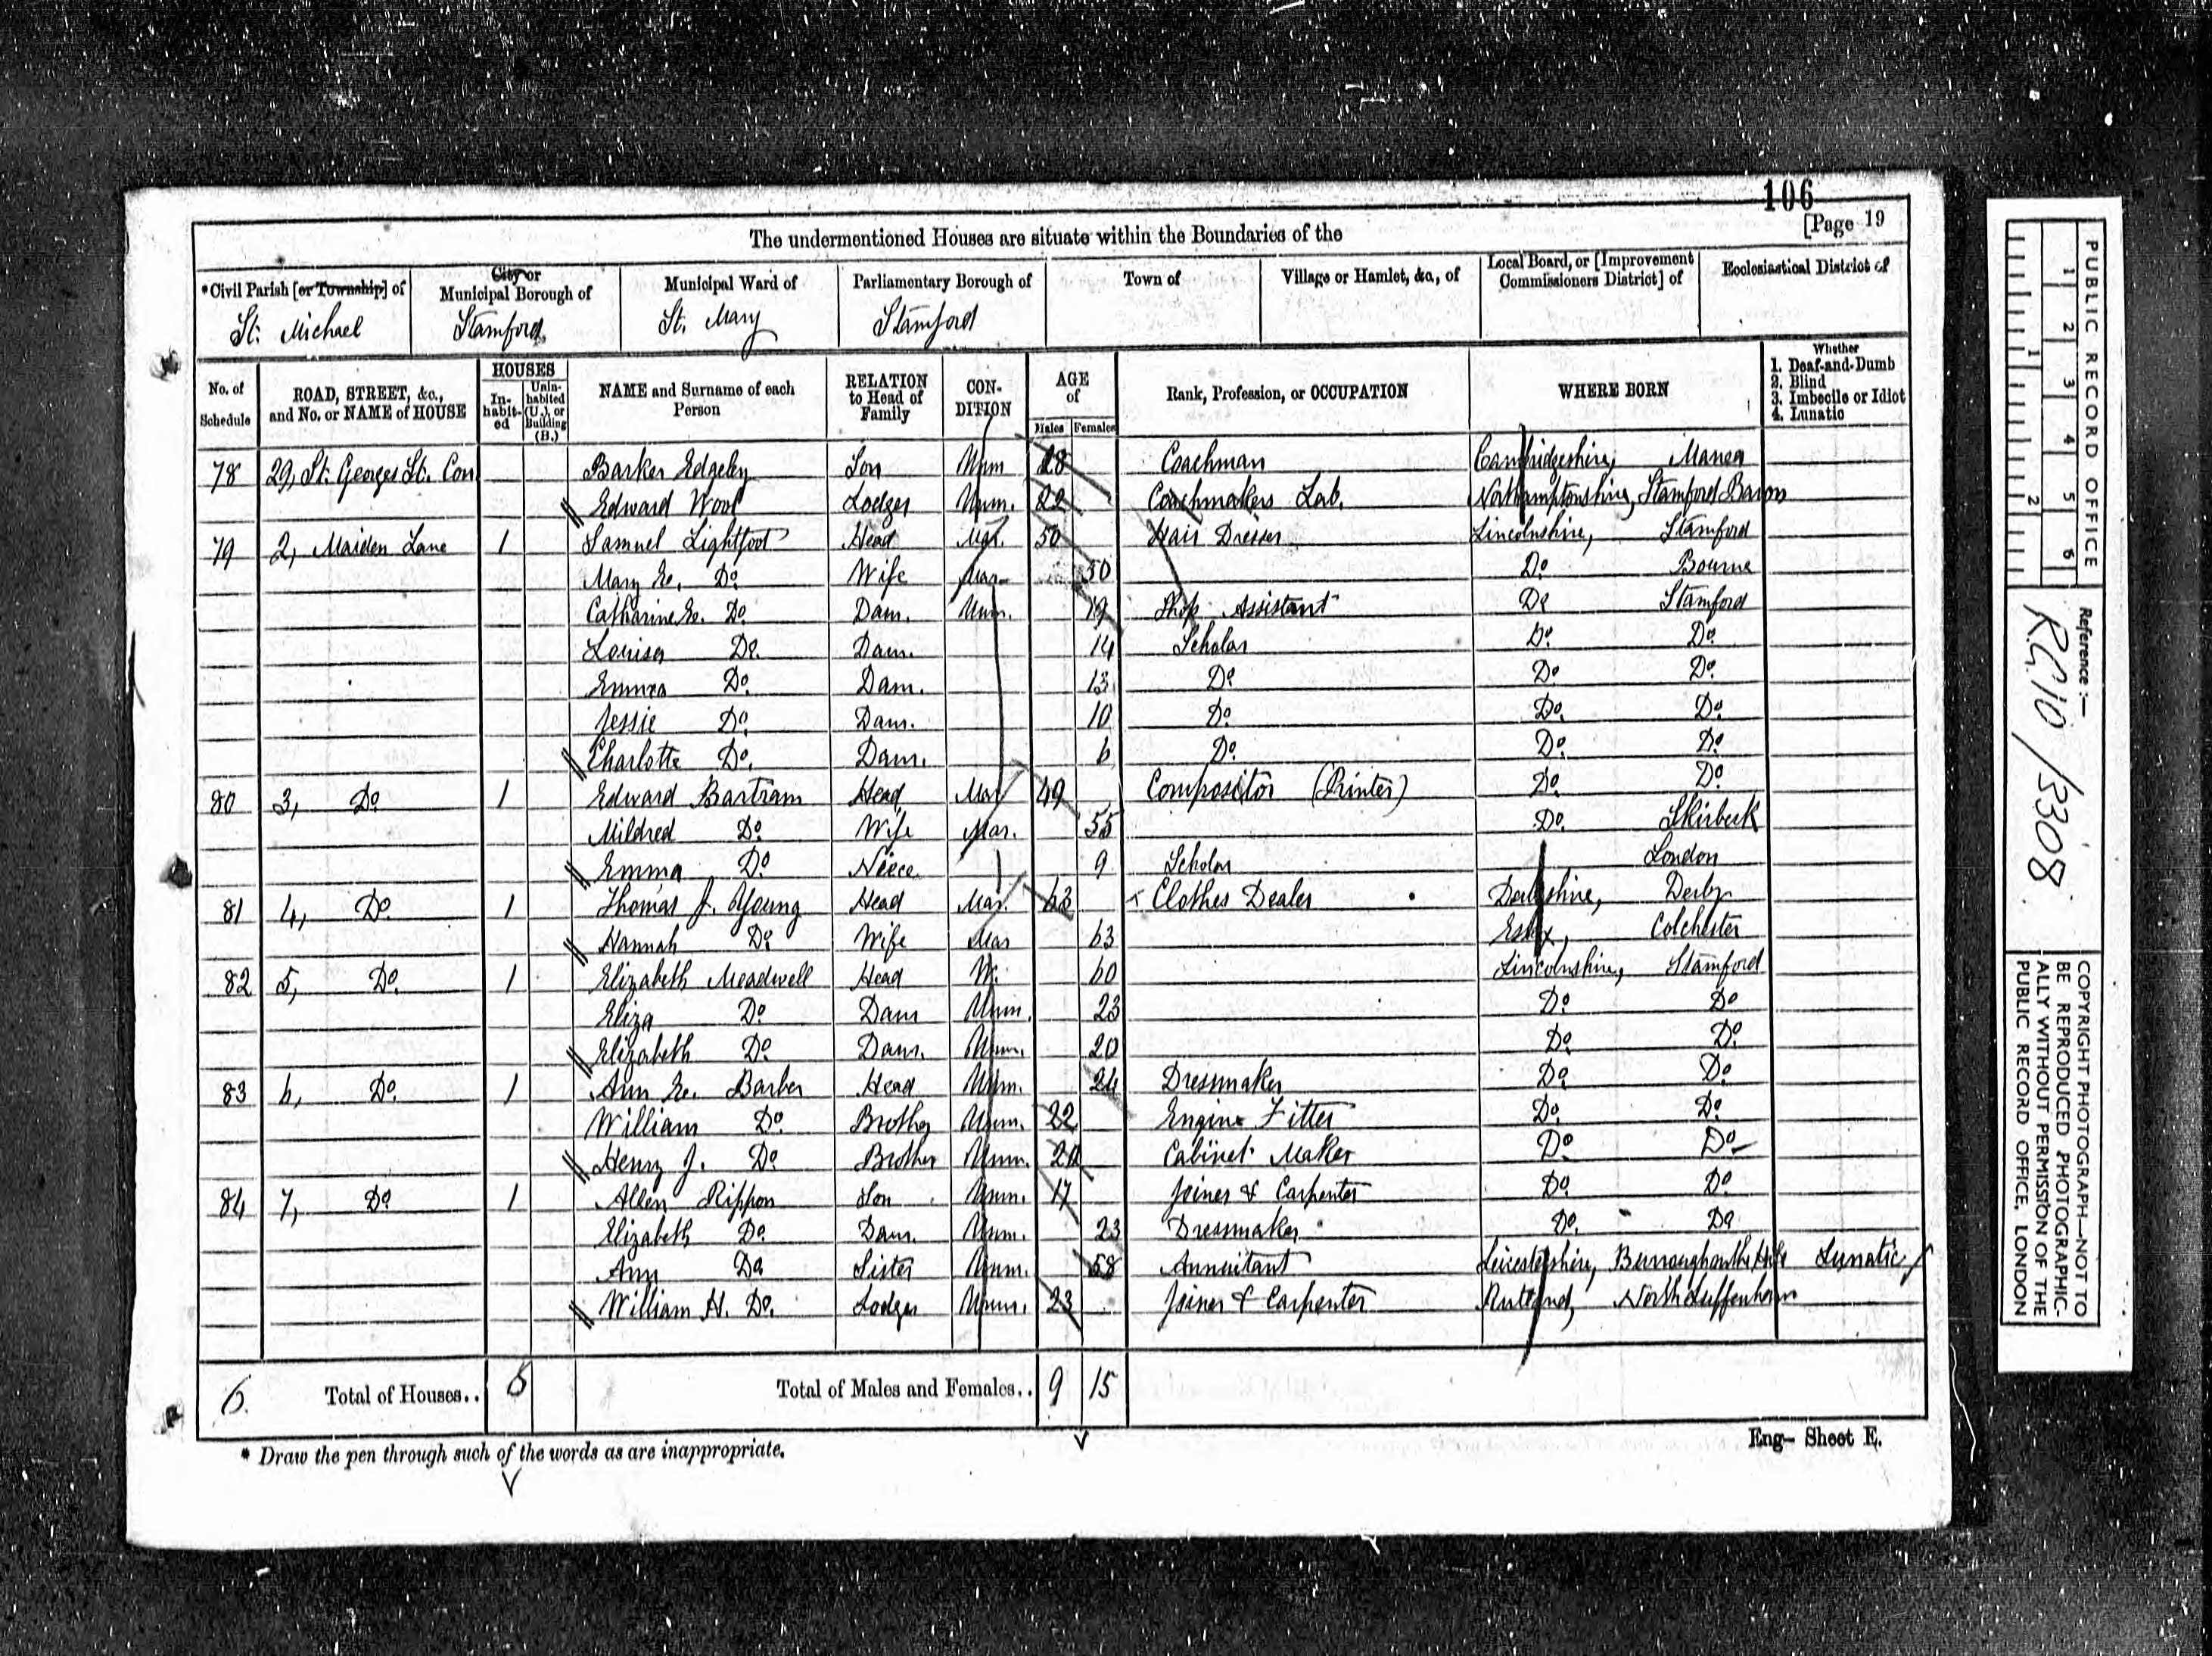 106
[Page 19
The undermentioned Houses are situate within the Boundaries of the
*Civil Parish [or Township] of
City or Municipal Borough of
Municipal Ward of
Parliamentary Borough of
Town of
Village or Hamlet, &c., of
Local Board, or [Improvement Commissioners District] of
Ecclesiastical District of
St. Michael
Stamford
St. Mary
Stamford
No. of Schedule
ROAD, STREET, &c., and No. or NAME of HOUSE
HOUSES
In-habit-ed
Unin-habited (U.), or Building (B.)
NAME and Surname of each Person
RELATION to Head of Family
CON-DITION
AGE of
Males
Females
Rank, Profession, or OCCUPATION
WHERE BORN
Whether
1. Deaf-and-Dumb
2. Blind
3. Imbecile or Idiot
4. Lunatic
78 29, St. Georges St. Con Barker Edgeley Son Unm 28 Coachman Cambridgeshire, Manea
Edward Wool Lodger Unm. 22 Coachmakers Lab. Northamptonshire, Stamford Baron
79 2, Maiden Lane 1 Samuel Lightfoot Head Mar. 50 Hair Dresser Lincolnshire, Stamford
Mary E. Do Wife Mar. 50 Do Bourne
Catharine E. Do Daur. Unm. 19 Shop Assistant Do Stamford
Louisa Do Daur. 14 Scholar Do Do
Emma Do Daur. 13 Do Do Do
Jessie Do Daur. 10 Do Do Do
Charlotte Do Daur. 6 Do Do Do
80 3, Do 1 Edward Bartram Head Mar 49 Compositor (Printer) Do Do
Mildred Do Wife Mar. 55 Do Skirbeck
Emma Do Niece 9 Scholar London
81 4, Do 1 Thomas J. Young Head Mar. 63 Clothes Dealer Derbyshire, Derby
Hannah Do Wife Mar 63 Essex, Colchester
82 5, Do 1 Elizabeth Meadwell Head W. 60 Lincolnshire, Stamford
Eliza Do Daur Unm. 23 Do Do
Elizabeth Do Daur. Unm. 20 Do Do
83 6, Do 1 Ann E. Barber Head Unm. 24 Dressmaker Do Do
William Do Brother Unm. 22 Engine Fitter Do Do
Henry J. Do Brother Unm. 20 Cabinet Maker Do Do
84 7, Do 1 Allen Rippon Son Unm. 17 Joiner & Carpenter Do Do
Elizabeth Do Daur. Unm. 23 Dressmaker Do Do
Ann Do Sister Unm. 58 Annuitant Leicestershire, Burrough on the Hill Lunatic
William H. Do. Lodger Unm. 23 Joiner & Carpenter Rutland, North Luffenham
6. Total of Houses.. 5 Total of Males and Females.. 9 15
* Draw the pen through such of the words as are inappropriate.
Eng- Sheet E.
PUBLIC RECORD OFFICE
1 2 3 4 5 6
1 2
Reference :-
RG10/3308
COPYRIGHT PHOTOGRAPH—NOT TO
BE REPRODUCED PHOTOGRAPHIC-
ALLY WITHOUT PERMISSION OF THE
PUBLIC RECORD OFFICE, LONDON